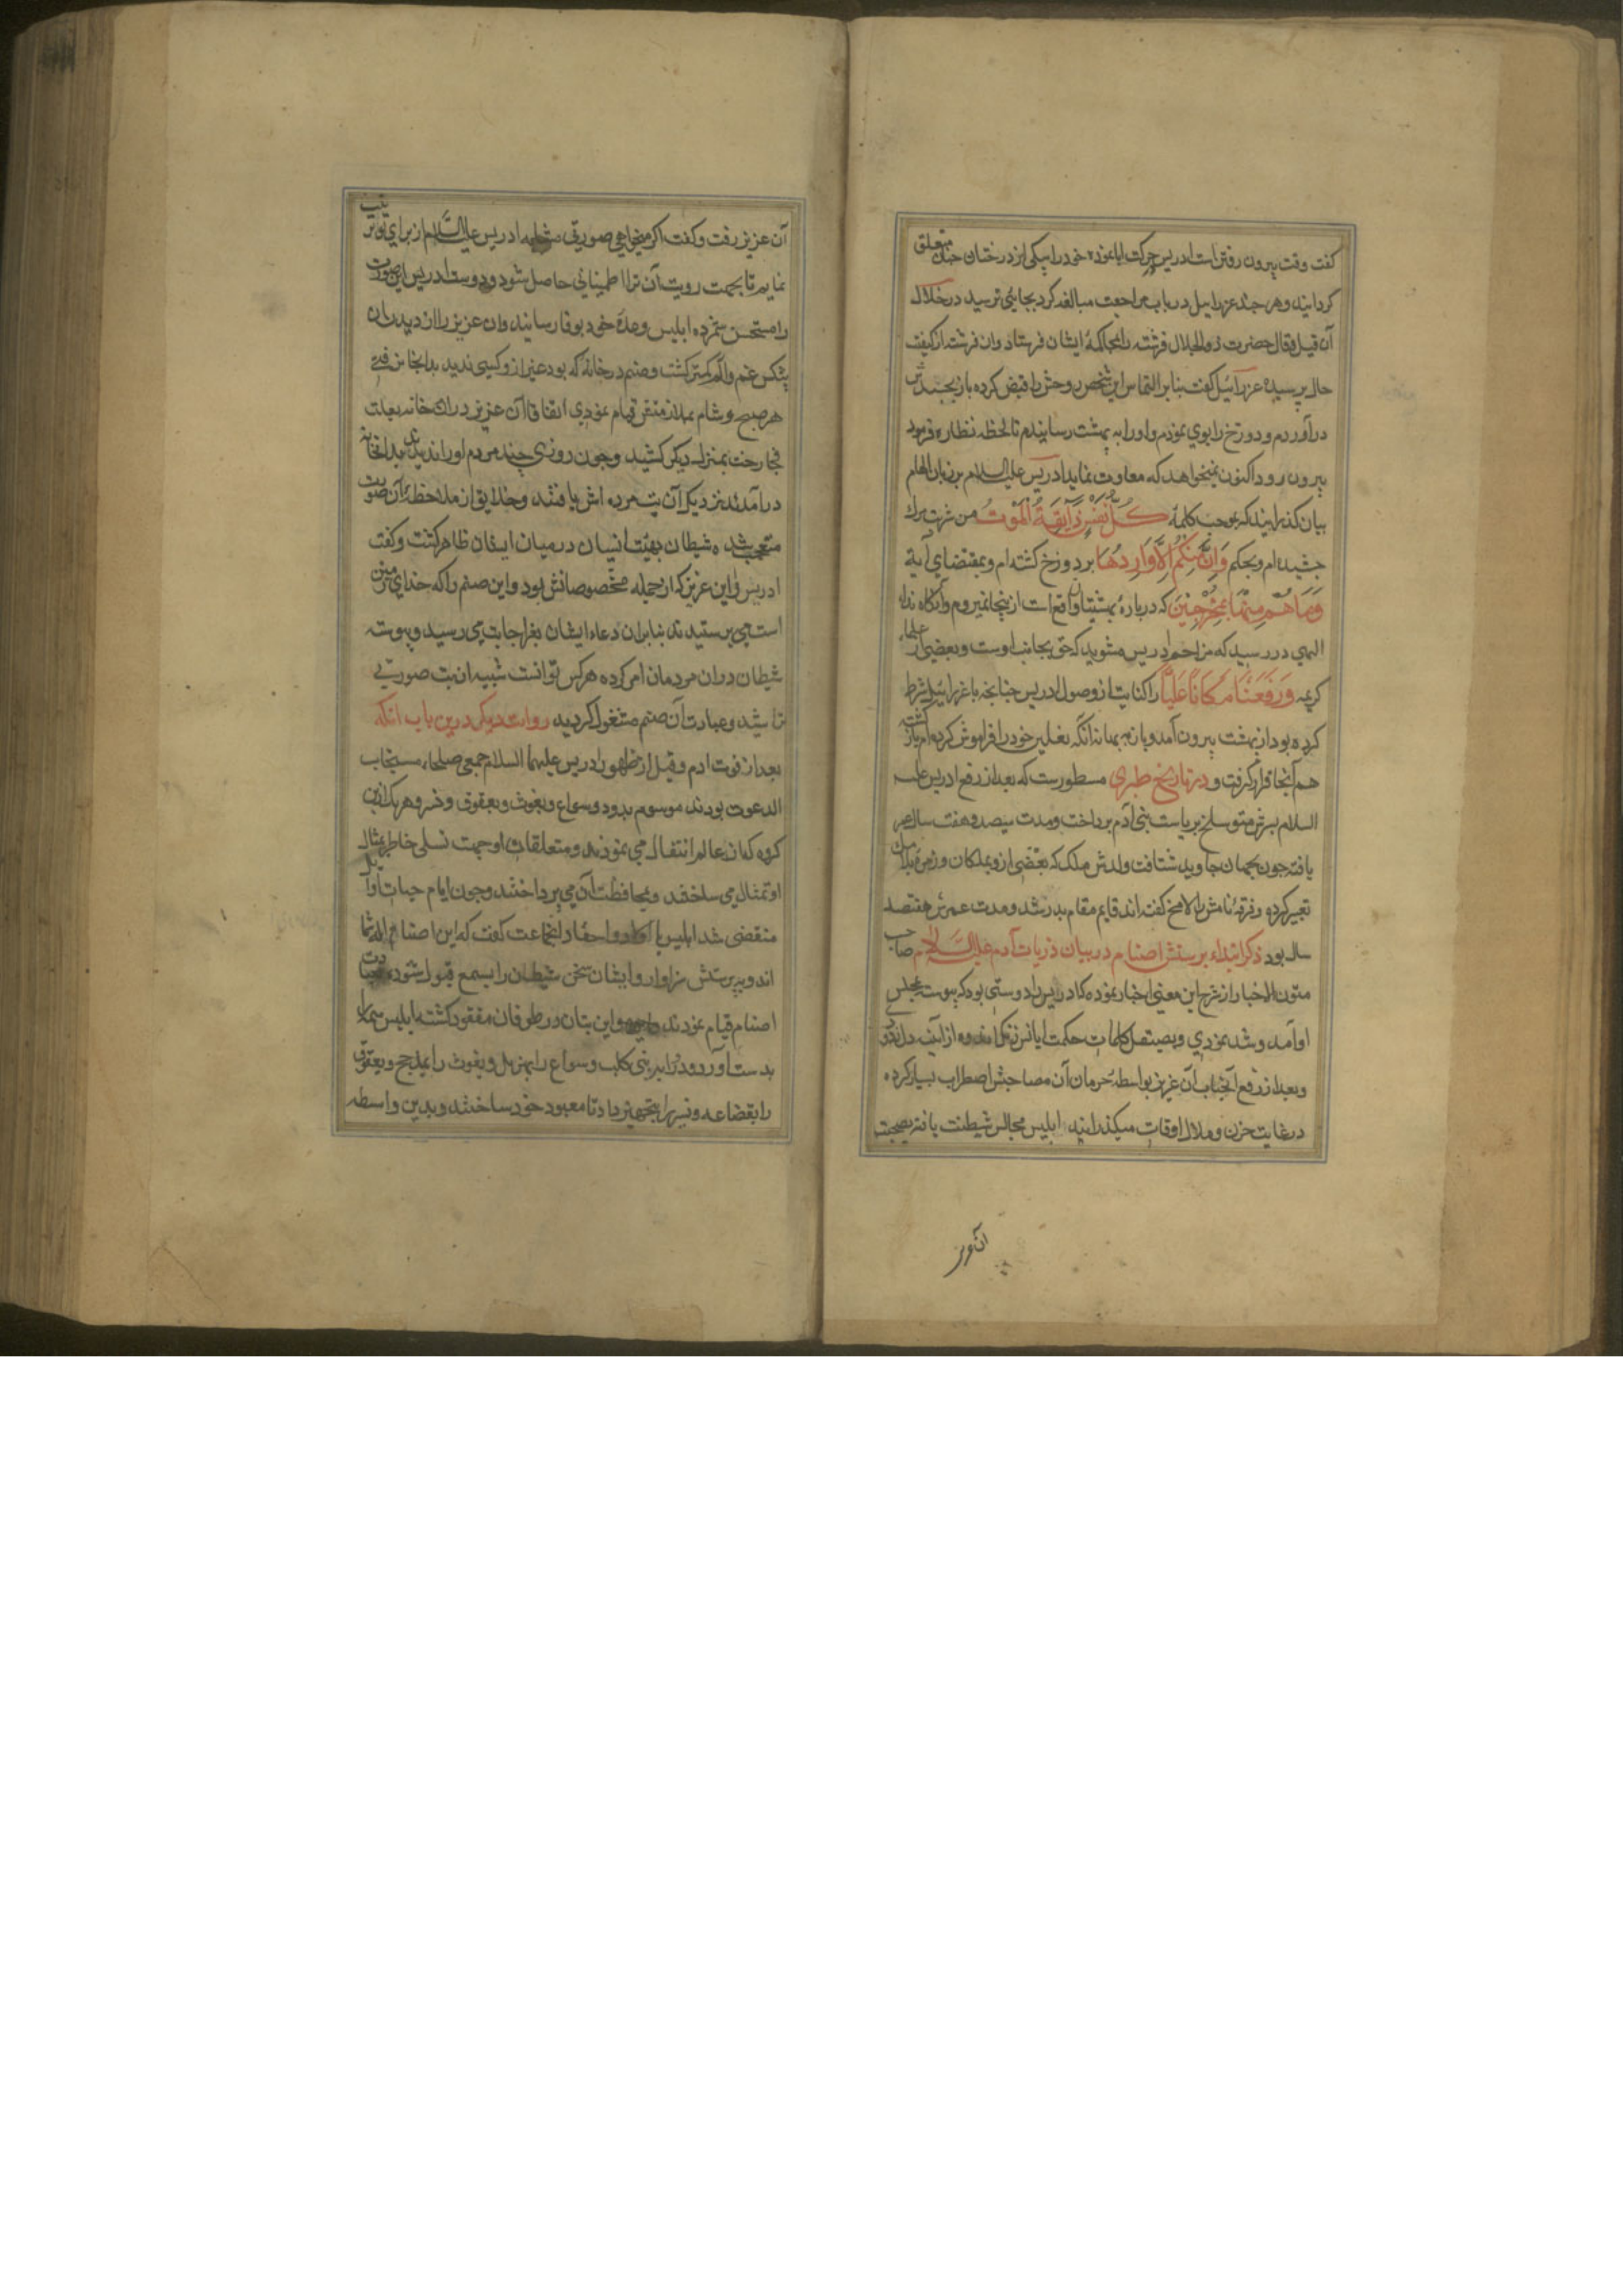 کفت وقت بیرون رفتن است ادریس حرکت ابا نموده خود را بیکی از درختان جنان متعلق
کردانید و هر چند عزرائیل در باب مراجعت مبالغه کرد بجایی نرسید در خلال
آن قیل و قال حضرت ذو الجلال فرشته را بمحاکمهٔ ایشان فرستاد و ان فرشته از کیفیت
حال پرسید عزرائیل کفت بنابر التماس این شخص روحش را قبض کرده باز بجسدش
درآوردم و دوزخ را بوی نمودم و او را به بهشت رسانیدم تا لحظه نظاره فرمود
بیرون رود اکنون نمیخواهد که معاودت نماید ادریس علیه السلام بر زبان الهام
بیان کذرانید که بموجب کلمهٔ كُلُّ نَفْسٍ ذَآيِقَةُ الْمَوْتُ من شربت مرك
چشیده ام و بحکم وَاِنْ مِنْكُمْ اِلَّا وَارِدُهَا بر دوزخ کذشته ام و بمقتضای آیة
وَمَا هُمْ مِنْهَا بِمُخْرَجِيْنَ که در بارهٔ بهشتیان واقع است از اینجا نمیروم و آنکاه نداء
الهی در رسید که مزاحم ادریس مشوید که حق بجانب اوست و بعضی از علماء
کریمه وَرَفَعْنَاهُ مَكَانًا عَلِيًّا را کنایت از وصول ادریس چنانچه با عزرائیل شرط
کرده بود از بهشت بیرون آمد و بازبه بهانه انکه نعلین خود را فراموش کرده ام باز کشته
هم آنجا قرار کرفت و در تاریخ طبری مسطورست که بعد از رفع ادریس علیه
السلام پسرش متوسلخ بریاست بنی آدم پرداخت و مدت سیصد و هفت سال عمر
یافته چون بجهان جاوید شتافت ولدش ملک که بعضی از و بملکان و زمرهٔ بلامک
تعبیر کرده و فرقهٔ نامش را لامخ کفته اند قایم مقام پدر شد و مدت عمرش هفتصد
سال بود ذکر ابتداء پرستش اصنام در بیان ذریات آدم علیه السلام صاحب
متون الاخبار از شرح این معنی اخبار نموده که ادریس را دوستی بود که پیوسته بمجلس
او آمد و شد نمودی و بصیقل کلمات حکمت ایاتش زنک اندوه از آینه دل زدودی
و بعد از رفع آنجناب آن عزیز بواسطه حرمان آن مصاحبش اضطراب بسیار کرده
در غایت حزن و ملال اوقات میکذرانید ابلیس مجالس شیطنت یافته بصحبت
آن عزیز
آن عزیز رفت و کفت اکر میخواهی صورتی مشابه ادریس علیه السلام از برای تو ترتیب
نمایم تا بجهت رویت آن ترا اطمینانی حاصل شود و دوست ادریس این صورت
را مستحسن شمرده ابلیس وعدهٔ خود بوفا رسانید و ان عزیز را از دیدن ان
پیکر غم و الم کمتر کشت و صنم در خانهٔ که بود غیر از و کسی ندید بدانجا می رفتی
هر صبح و شام بملازمتش قیام نمودی اتفاقا آن عزیز در ان خانه بعلت
فجا رخت بمنزل دیکر کشید و چون روزی چند مردم او را ندیدند بدانخانه
درآمدند نزدیک آن بت مرده اش یافتند و خلایق از ملاحظهٔ آن صورت
متعجب شده شیطان بهیئت انسان در میان ایشان ظاهر کشت و کفت
ادریس و این عزیز که از جمله مخصوصانش بود و این صنم را که خدای زمین
است می پرستیدند بنابران دعاء ایشان بعز اجابت می رسید و پیوسته
شیطان دران مردمان امر کرده هر کس توانست شبیه ان بت صورتی
تراشید و عبادت آن صنم مشغول کردید روایت دیکر درین باب انکه
بعد از فوت ادم و قبل از ظهور ادریس علیهما السلام جمعی صلحاء مستجاب
الدعوت بودند موسوم بود و سواع و یغوث و یعوق و نسر و هر یک ازین
کروه که ازعالم انتقال می نمودند و متعلقات او جهت تسلی خاطر بمثال
او تمثال می ساختند و بمحافظت آن می پرداختند و چون ایام حیات اوایل
منقضی شد ابلیس با اولاد و احفاد آنجماعت کفت که این اصنام اله شما
اند و بپرستش سزاوار و ایشان سخن شیطان را بسمع قبول شنوده بعبادت
اصنام قیام نمودند و این بتان در طوفان مفقود کشته ابلیس همه را
بدست آورد ود را به بنی کلب و سواع را بهزیل و یغوث را بمذحج و یعوق
را بقضاعه و نسر را بحمیر داد تا معبود خود ساختند و بدین واسطه